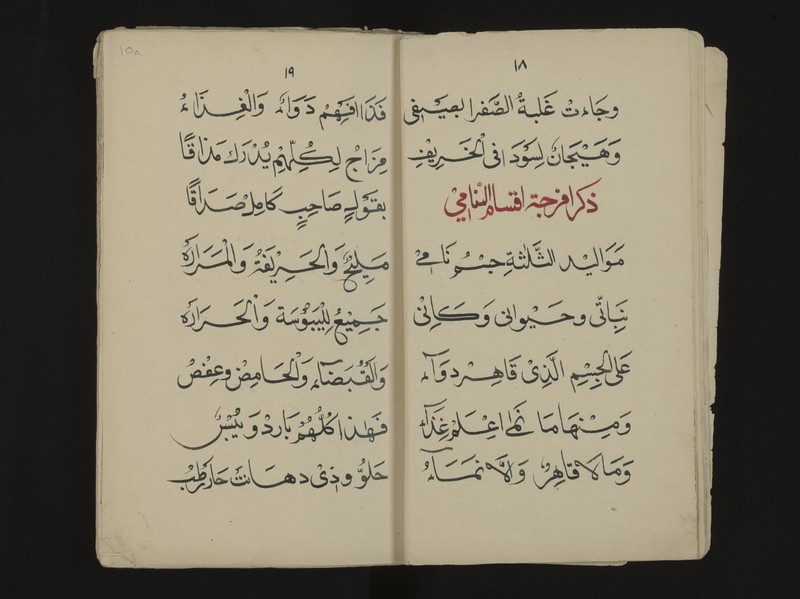 ١٨
وجاءت غلبة الصفرا بصيفى
وهيجان لسودا فى الخريف
ذكر امزجة اقسام النامي
مواليد الثلثة جسم نامي
نباتى وحيوانى وكانى
على الجسم الذى قاهر دوآء
ومنها ما نمى اعلم غذآء
وما لا قاهر ولا نماء
10a
١٩
فذا افهم دواء والغذاء
مزاج لكلهم يدرك مذاقا
بقوله صاحب كامل صداقا
مليح والحريفة والمراره
جميع لليبوسة والحراره
والقبضاء والحامض وعفص
فهذا كلهم بارد ويبس
حلو وذى دهانت حار رطب